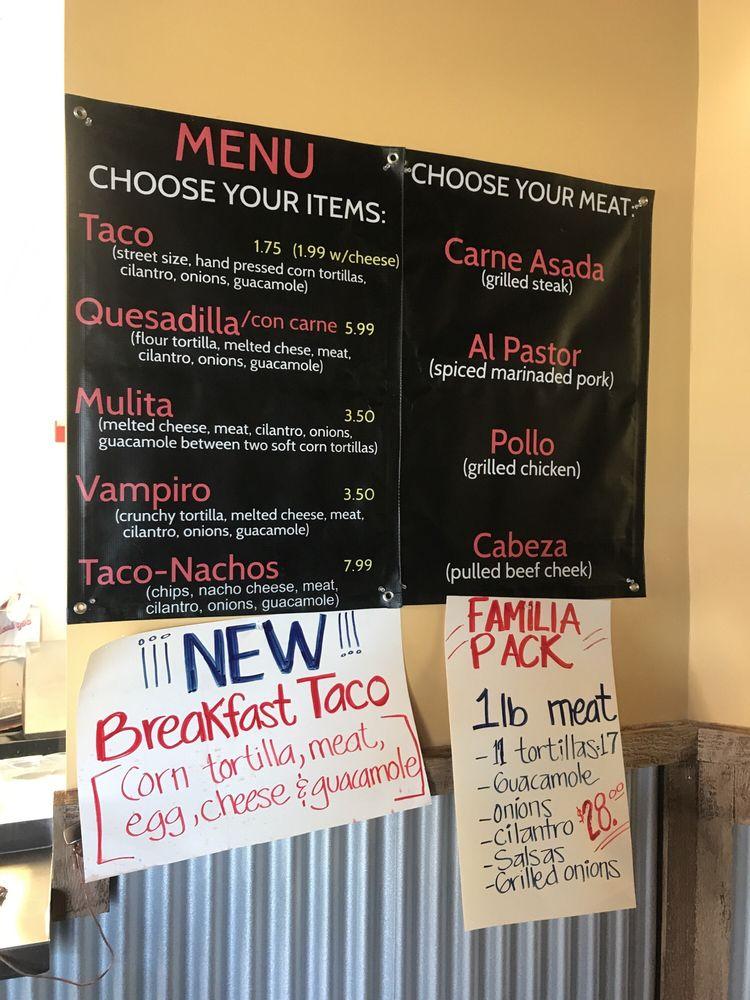 MENU
CHOOSE YOUR ITEMS:
Taco 1.75 (1.99 w/cheese)
(street size, hand pressed corn tortillas,
cilantro, onions, guacamole)
Quesadilla/con carne 5.99
(flour tortilla, melted chese, meat,
cilantro, onions, guacamole)
Mulita 3.50
(melted cheese, meat, cilantro, onions,
guacamole between two soft corn tortillas)
Vampiro 3.50
(crunchy tortilla, melted cheese, meat,
cilantro, onions, guacamole)
Taco-Nachos 7.99
(chips, nacho cheese, meat,
cilantro, onions, guacamole)
CHOOSE YOUR MEAT:
Carne Asada
(grilled steak)
Al Pastor
(spiced marinaded pork)
Pollo
(grilled chicken)
Cabeza
(pulled beef cheek)
¡¡¡NEW!!!
Breakfast Taco
[Corn tortilla, meat,
egg, cheese & guacamole]
FAMILIA
PACK
1lb meat
- 11 tortillas:17
- Guacamole
- Onions
- Cilantro $28.00
- Salsas
- Grilled onions